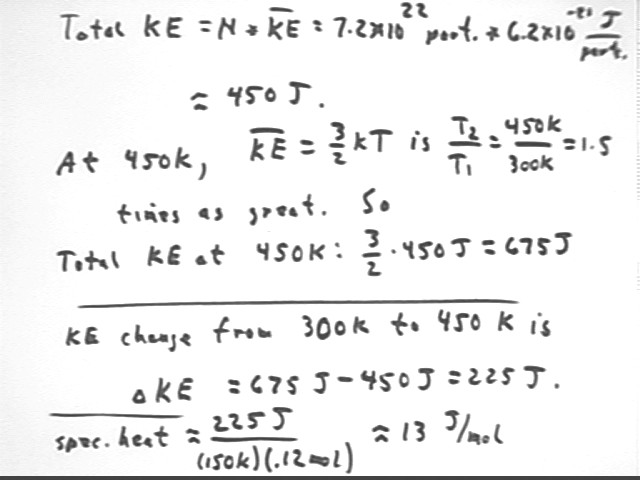 Total KE = N * K̅E̅ = 7.2x10^22 part. * 6.2x10^-21 J/part.
≈ 450 J.
At 450K, K̅E̅ = 3/2 kT is T2/T1 = 450K/300K = 1.5
times as great. So
Total KE at 450K: 3/2 · 450 J = 675 J
KE change from 300K to 450 K is
△KE = 675 J - 450 J = 225 J.
spec. heat ≈ 225 J/(150K)(.12 mol) ≈ 13 J/mol